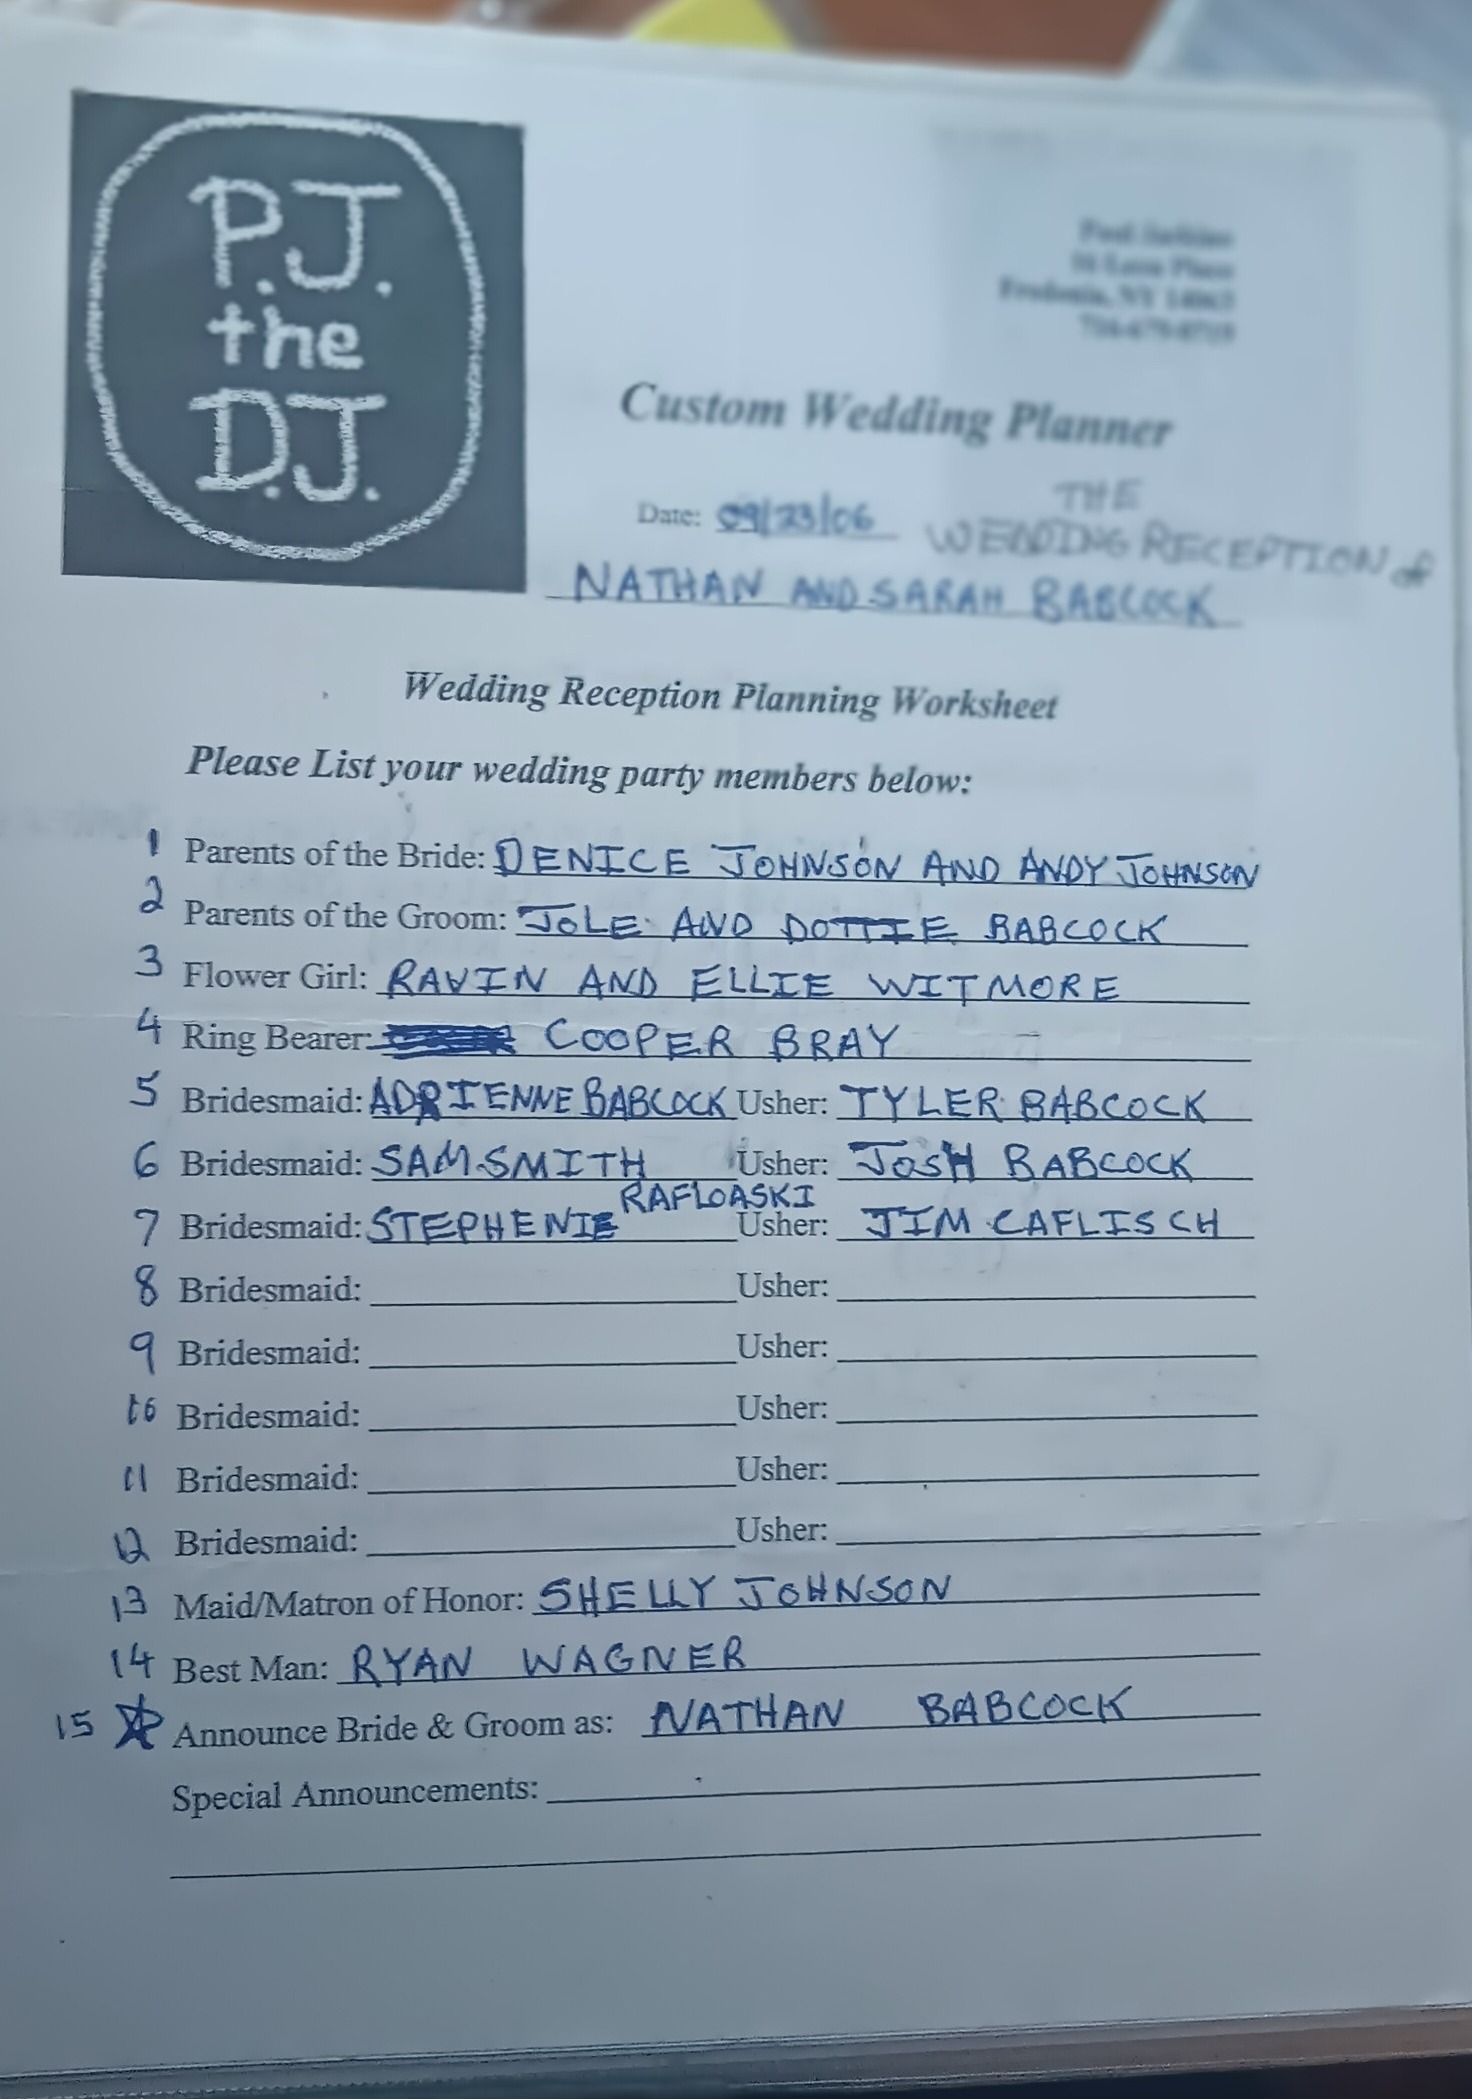 P.J.
the
D.J.
Fredonia, NY 14063
Custom Wedding Planner
Date: 09/23/06 THE
WEDDING RECEPTION of
NATHAN AND SARAH BABCOCK
Wedding Reception Planning Worksheet
Please List your wedding party members below:
1 Parents of the Bride: DENICE JOHNSON AND ANDY JOHNSON
2 Parents of the Groom: JOLE AND DOTTIE BABCOCK
3 Flower Girl: RAVIN AND ELLIE WITMORE
4 Ring Bearer: COOPER BRAY
5 Bridesmaid: ADRIENNE BABCOCK Usher: TYLER BABCOCK
6 Bridesmaid: SAM SMITH Usher: JOSH BABCOCK
7 Bridesmaid: STEPHENIE RAFLOASKI Usher: JIM CAFLISCH
8 Bridesmaid: Usher:
9 Bridesmaid: Usher:
10 Bridesmaid: Usher:
11 Bridesmaid: Usher:
12 Bridesmaid: Usher:
13 Maid/Matron of Honor: SHELLY JOHNSON
14 Best Man: RYAN WAGNER
15 Announce Bride & Groom as: NATHAN BABCOCK
Special Announcements: